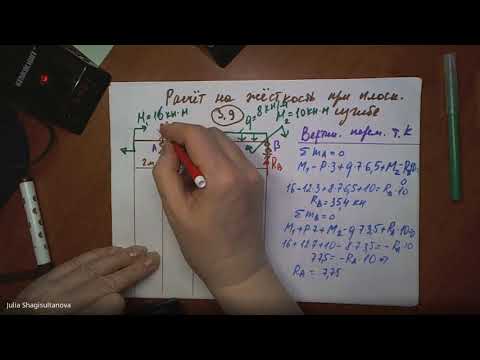 Расчёт на жёсткость при плоск.
изгибе
3,9
M₁=16кН·м
q=8кН/м
M₂=10кН·м
A
B
R_B
2м
Вертик. перем. т. К
Σm_A=0
M₁-P·3+q·7·6,5+M₂-R_B·10
0
16-12·3+8·7·6,5+10=R_B·10
R_B=35,4 кН
Σm_B=0
M₁+P·7+M₂-q·7·3,5+R_A·10=0
16+12·7+10-8·7·3,5=-R_A·10
77,5=-R_A·10
R_A=7,75
Julia Shagisultanova